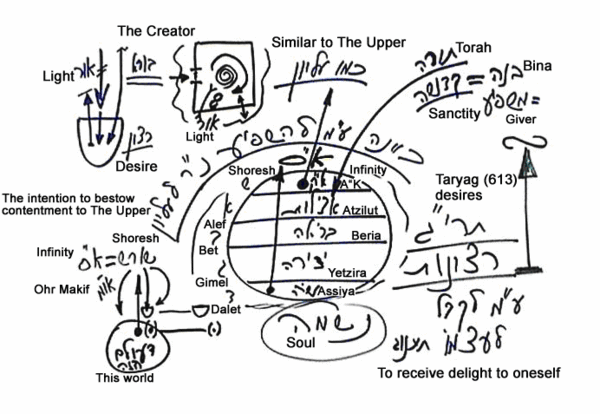 The Creator
Light
אור
בורא
Desire
רצון
Light
אור
Similar to The Upper
כמו עליון
תורה Torah
קדושה = בינה Bina
Sanctity
משפיע =
Giver
כוונה ע"מ להשפיע נ"ר לעליון
The intention to bestow
contentment to The Upper
א"ס
Shoresh Infinity
ש א"ק A"K
Alef א אצילות Atzilut
Bet בריאה Beria
Gimel יצירה Yetzira
Dalet עשיה Assiya
נשמה
Soul
Shoresh
Infinity א"ס = שורש
Ohr Makif או"מ
העולם הזה
This world
(·)
(·)
Taryag (613)
desires
תרי"ג
רצונות
ע"מ לקבל
לעצמו תענוג
To receive delight to oneself